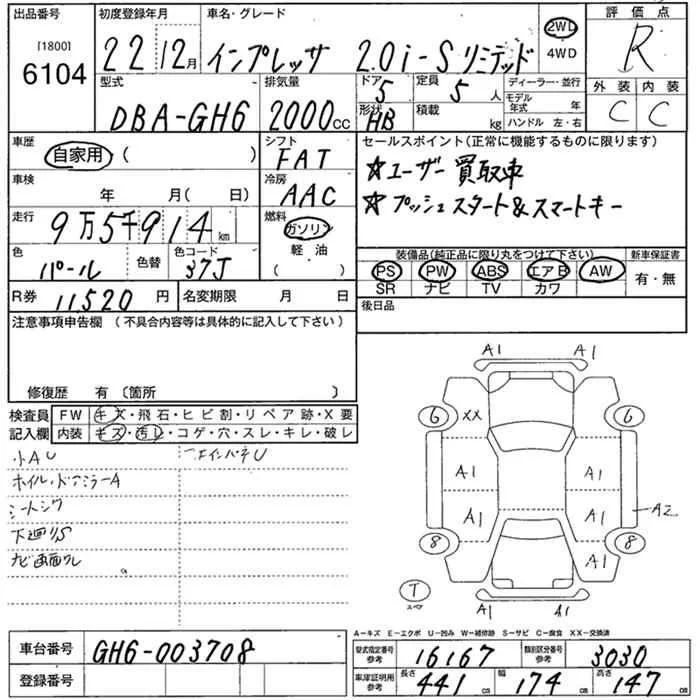 出品番号
[1800]
6104
初度登録年月
22 12月
車名・グレード
インプレッサ 2.0i-S リミテッド
2WD
4WD
評価点
R
型式
DBA-GH6
排気量
2000cc
ドア
5
形状
HB
定員
5人
積載
kg
ディーラー・並行
モデル年式 年
ハンドル 左・右
外装 内装
C C
車歴
自家用 ( )
シフト
FAT
車検
年 月( 日)
冷房
AAC
走行
9万5千914km
燃料
ガソリン
軽油
( )
色
パール
色替
色コード
37J
R券 11,520円
名変期限 月 日
セールスポイント(正常に機能するものに限ります)
☆ユーザー買取車
☆プッシュスタート&スマートキー
装備品(純正品に限り丸をつけて下さい)
新車保証書
PS PW ABS エアB AW
SR ナビ TV カワ
有・無
後日品
注意事項申告欄 (不具合内容等は具体的に記入して下さい)
修復歴 有〔箇所 〕
検査員記入欄
FW キズ・飛石・ヒビ割・リペア跡・X要
内装 キズ・汚レ・コゲ・穴・スレ・キレ・破レ
小AU
ホイル・ドアミラーA
シートシワ
下廻りS
ナビ画面ワレ
A1 A1
6 XX 6
A1 A1
A1 A1
A2
8 A1 8
T
スペア
A1 A1
A-キズ E-エクボ U-凹み W-補修跡 S-サビ C-腐食 XX-交換済
車台番号
GH6-003708
登録番号
型式指定番号
参考
16167
類別区分番号
参考
3030
車庫証明用
参考
長さ
441cm
幅
174cm
高さ
147cm